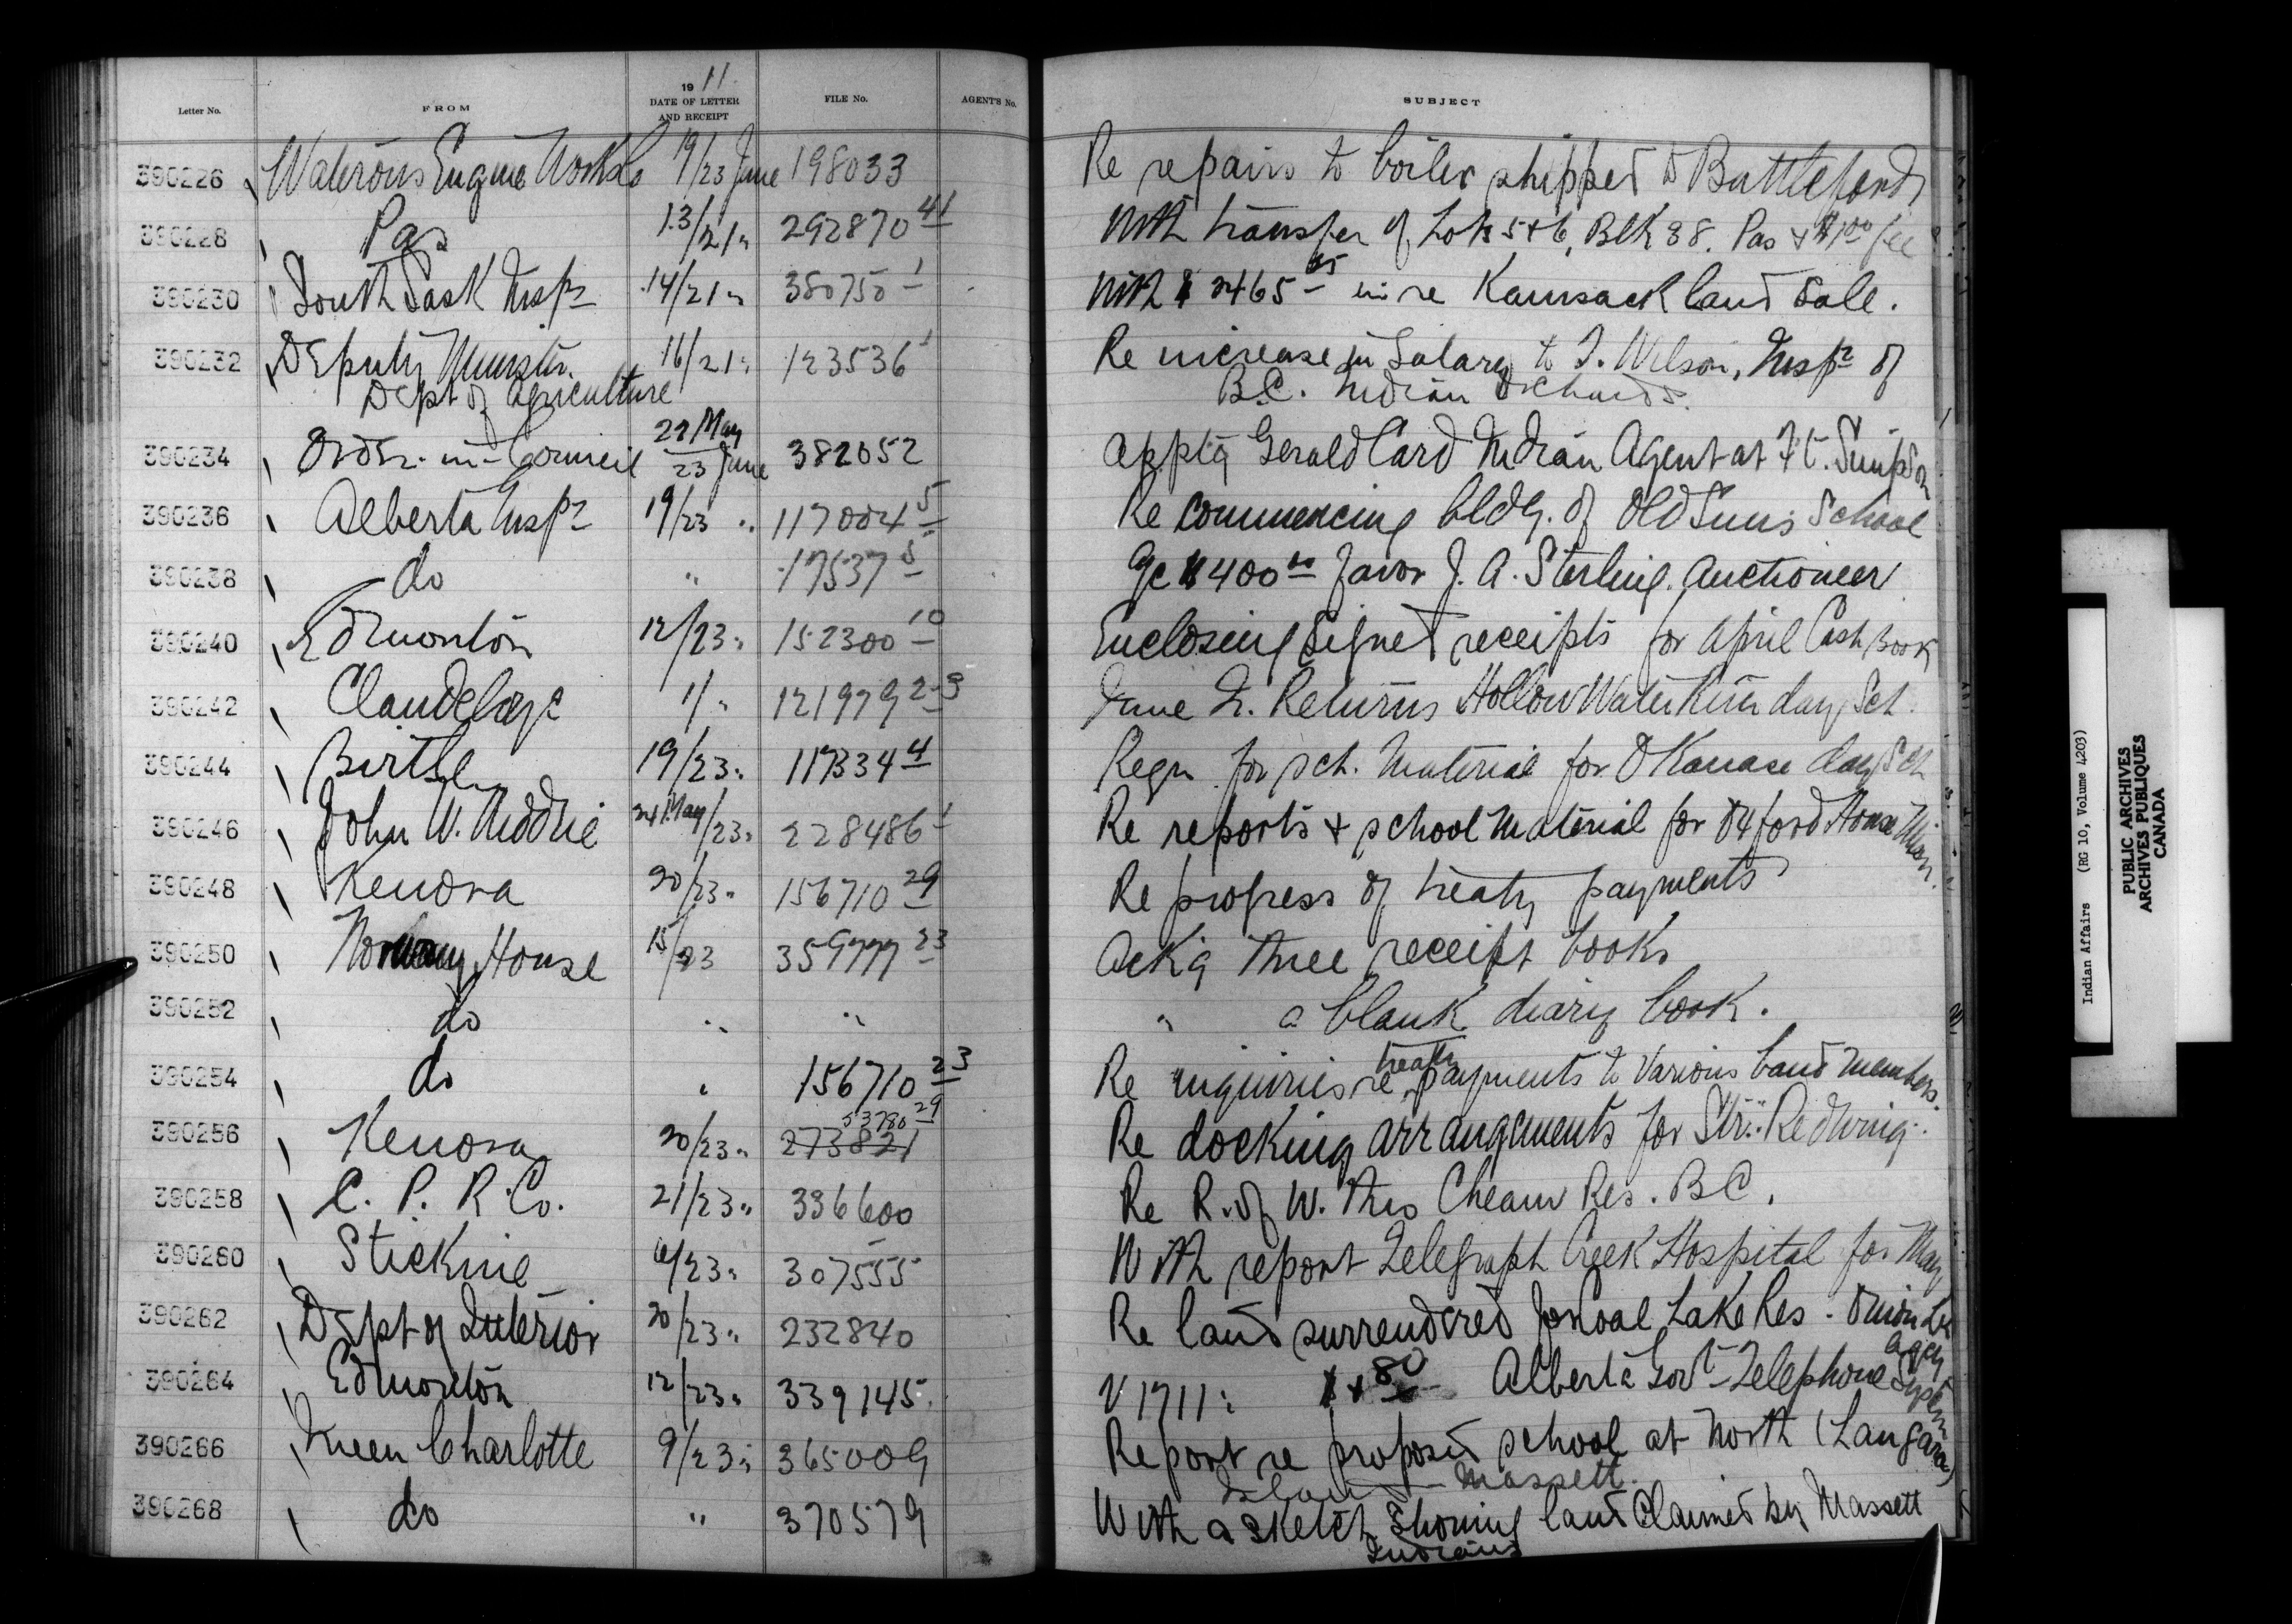 Letter No. FROM 19 11 DATE OF LETTER AND RECEIPT FILE No. AGENT'S No. SUBJECT
390226 Waterous Engine Works Co 19/23 June 198033 Re repairs to boiler shipped to Battleford
390228 Pas 13/21 " 292870 41 With transfer of Lots 5+6, Blk 38. Pas + $1.00 fee
390230 South Sask Inspr 14/21 " 380750 1 With $ 2465 in re Kamsack land sale.
390232 Deputy Minister. 16/21 " 123536 1 Re increase in Salary to T. Wilson, Inspr of
Dept of Agriculture B.C. Indian Orchards.
390234 Order-in-Council 22 May / 23 June 382052 Apptg Gerald Card Indian Agent at Ft. Simpson
390236 Alberta Inspr 19/23 " 117004 5 Re commencing bldg. of Old Suns School
390238 do " 17537 5 a/c $400 00 favor J. A. Sterling. Auctioneer
390240 Edmonton 12/23 " 152300 10 Enclosing signed receipts for April Cash Book
390242 Clandeboye 1/ " 121979 2-3 June Qr. Returns Hollow Water River day Sch.
390244 Birtle 19/23 " 117334 4 Reqn for sch. Material for Okanase day Sch
390246 John W. Niddrie 24 May/23 " 228486 1 Re reports + school Material for Oxford House Mission.
390248 Kenora 20/23 " 156710 29 Re progress of treaty payments
390250 Norway House 15/23 359777 23 Ackg three receipt books
390252 do " " " a blank diary book.
390254 do " 156710 23 Re inquiries re treaty payments to various band members.
390256 Kenora 20/23 " 273821 53780 29 Re docking arrangements for Str. "Redwing".
390258 C. P. R. Co. 21/23 " 336600 Re R. of W. thro Cheam Res. B.C.
390260 Stickine 6/23 " 307555 With report Telegraph Creek Hospital for May
390262 Dept of Interior 20/23 " 232840 Re land surrendered for Coal Lake Res - Onion Lk
Agcy
390264 Edmonton 12/23 " 339145 V 1711: 80 Alberta Govt Telephone System
390266 Queen Charlotte 9/23 " 365009 Report re proposed school at North (Langara)
Island - Massett.
390268 do " 370579 With a sketch showing land claimed by Massett
Indians
Indian Affairs (RG 10, Volume 4203)
PUBLIC ARCHIVES
ARCHIVES PUBLIQUES
CANADA